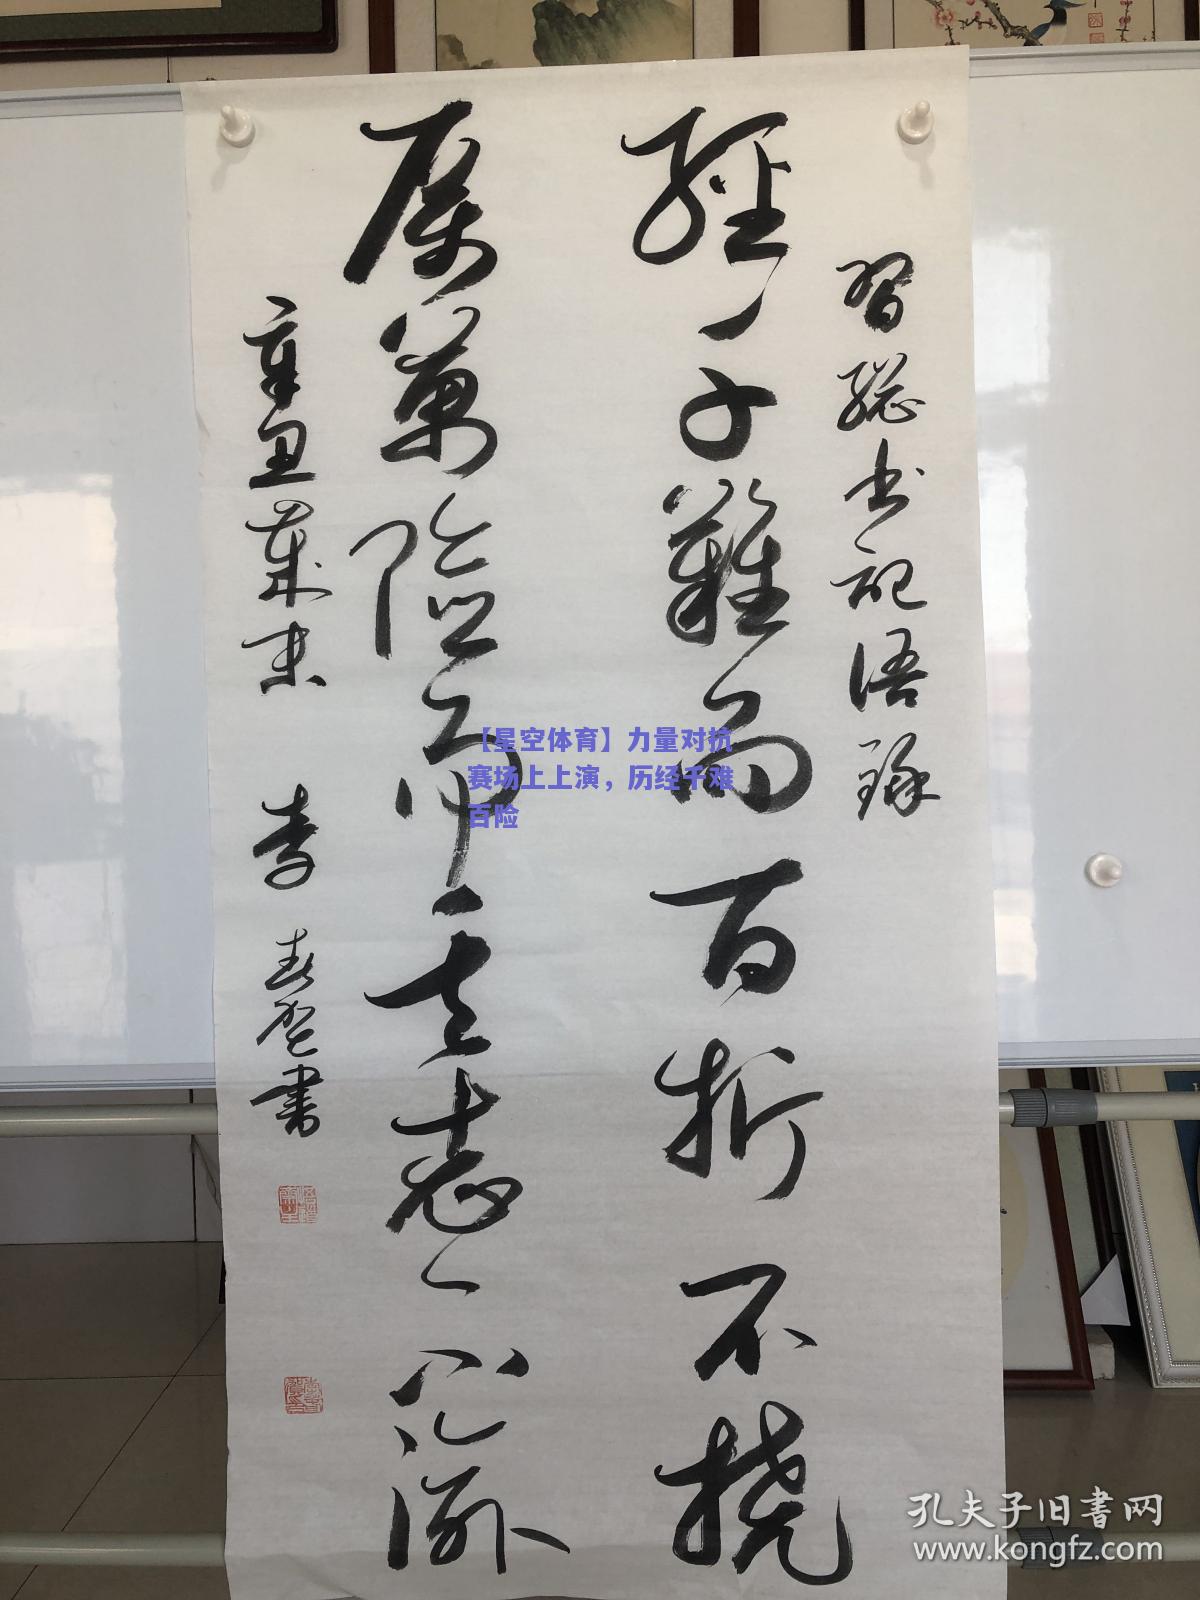 習總书记语錄
經千難而百折不撓
歷萬險而矢志不渝
辛丑歲末 李春 書
【星空体育】力量对抗
赛场上上演，历经千难
百险
孔夫子旧書网
www.kongfz.com